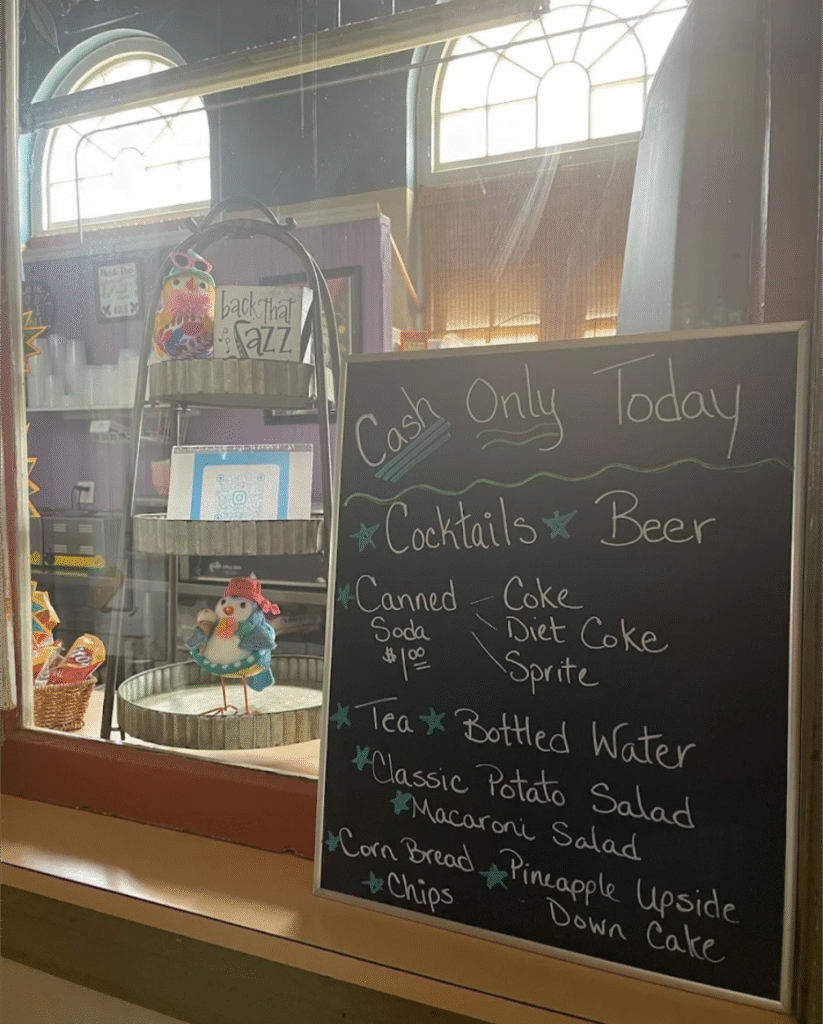 back that
Jazz
Cash Only Today
Cocktails Beer
Canned - Coke
Soda - Diet Coke
$1.00 - Sprite
Tea Bottled Water
Classic Potato Salad
Macaroni Salad
Corn Bread Pineapple Upside
Chips Down Cake